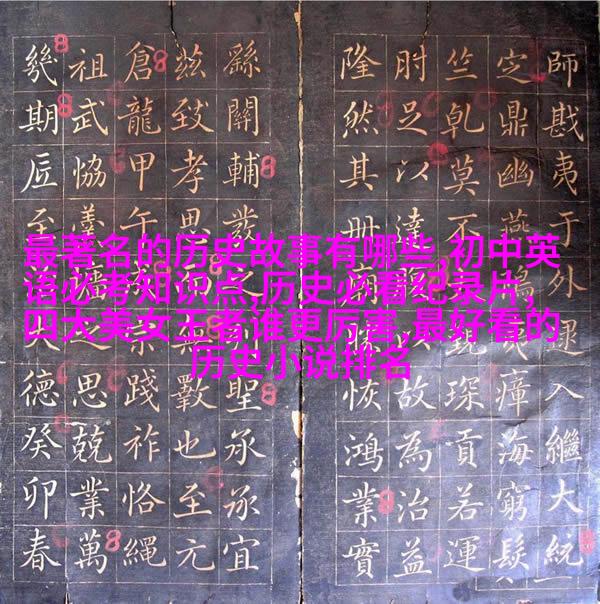 最著名的历史故事有哪些,初中英
语必考知识点,历史必看纪录片,
四大美女王者谁更厉害,最好看的
历史小说排名
師戡夷于外逮入繼大統
定鼎幽燕瘴海窮髮
竺乹莫不琛貢若運
肘足以達故為治益
隆然其冊恢鴻業實
繇關輔發聖承承宜
玆致孝思斁也至元
倉龍甲午宗踐祚恪繩
祖武協之思兢業萬
幾期匠至德癸卯春